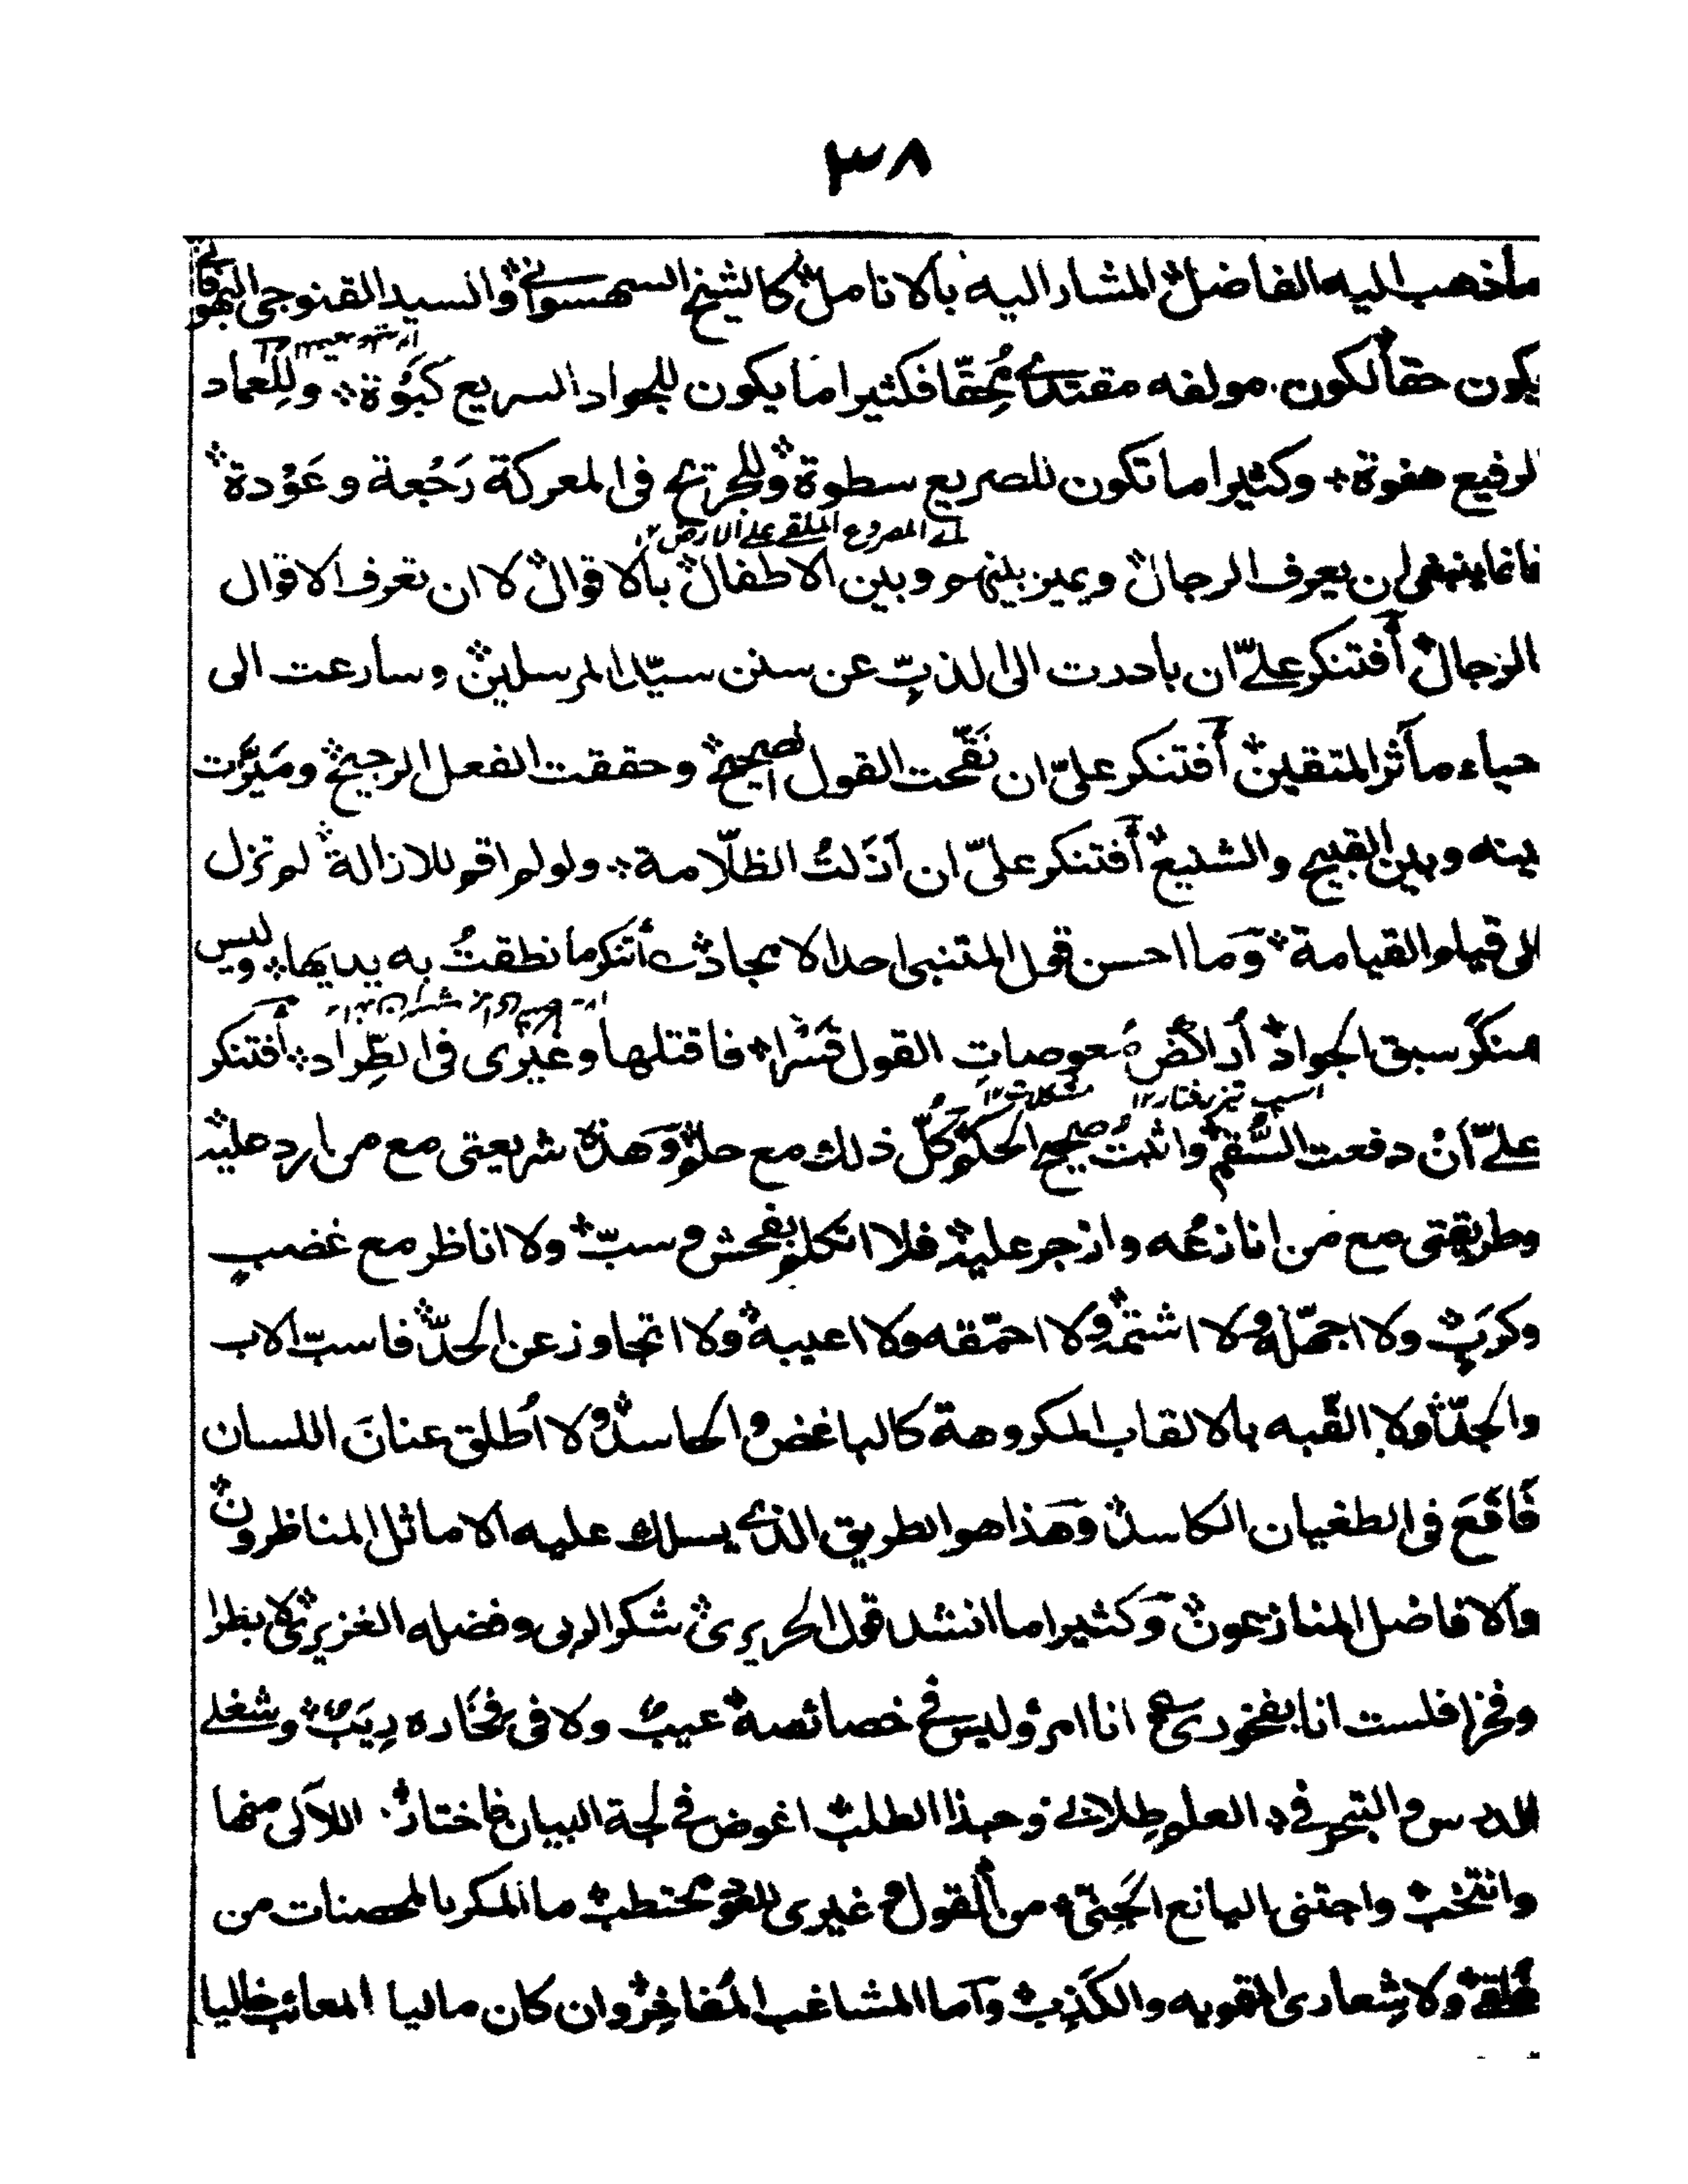 ٣٨
ما ذهب اليه الفاضل المشار اليه بالانامل كالشيخ السهسوانى والسيد القنوجى
يكون حقا لكون مولفه مقتدى مُحِقّا فكثيرا ما يكون للجواد السريع كَبْوُة وللعماد
لرفيع هفوة وكثيرا ما تكون للصريع سطوة وللجريح فى المعركة رَجُعة وعَوْدة
اے المصروع الملقے علے الارض ١٢
فانما ينبغى ان يعرف الرجال ويميز بينهم وبين الاطفال بالاقوال لا ان تعرف الاقوال
الرجال أفتنكر علىّ ان بادرت الى الذبّ عن سنن سيّد المرسلين وسارعت الى
حياء مآثر المتقين أفتنكر علىّ ان نَقّحت القول الصحيح وحققت الفعل الرجيح وميّزت
بينه وبين القبيح والشنيع أفتنكر علىّ ان اَزَلتُ الظلّامة ولو لم اقم للازالة لم تزل
الى قيام القيامة وما احسن قول المتنبى احد الامجاد أتنكر ما نطقتُ به بديها وليس
منكَر سبق الجواد أراكض مُعوصاتِ القول قَسْرا فاقتلها وغيرى فى الطِّراد أفتنكر
اسپ تيز رفتار ١٢ مشكلات ١٢
علىّ اَنْ دفعت السُّقم واثبتُ صحيح الحكم كُلّ ذلك مع حلم وهذه شريعتى مع من ارد عليه
وطريقتى مع من انازعُه وازجر عليه فلا اتكلم بفحش وسبّ ولا اناظر مع غضبٍ
وكربٍ ولا اجهّله ولا اشتمه ولا احمّقه ولا اعيبه ولا اتجاوز عن الحدّ فاسبّ الاب
والجدّ ولا القّبه بالالقاب المكروهة كالباغض والحاسد ولا اُطلق عنانَ اللسان
فَاَقَعَ فى الطغيان الكاسد وهذا هو الطريق الذى يسلك عليه الاماثل المناظرون
والافاضل المنازعون وكثيرا ما انشد قول الحريرى شكرا لربى وفضله الغزير لا بطرا
وفخرا فلست انا بفخورى ع انا امرؤ ليس فى خصائصه عيبٌ ولا فى فخاره رِيَبٌ وشغلى
الدرس والتبحر فى العلم طِلابى وحبذا الطلب اغوض فى لجة البيان فاختار اللآلى منها
وانتخب واجتنى اليانع الجَنِىّ من القول وغيرى للعود يحتطب ما المكر بالمحصنات من
خُلقى ولا شِعارى التمويه والكَذِب وأما المشاغب المُفاخِر وان كان ماليا المعائب خاليا